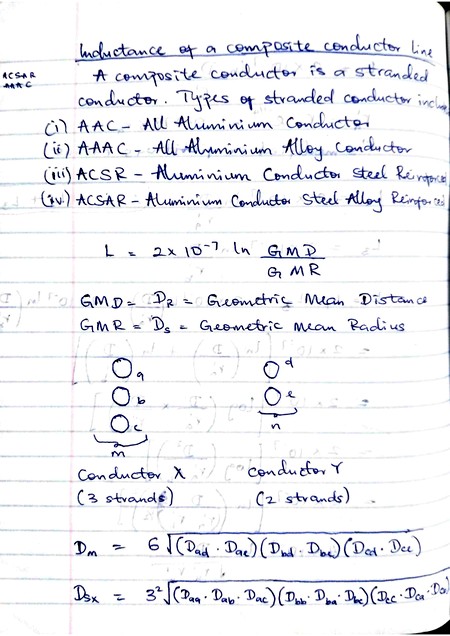 Inductance of a composite conductor line
ACSAR
AAAC
A composite conductor is a stranded
conductor. Types of stranded conductor include
(i) AAC - All Aluminium Conductor
(ii) AAAC - All Aluminium Alloy Conductor
(iii) ACSR - Aluminium Conductor Steel Reinforced
(iv) ACSAR - Aluminium Conductor Steel Alloy Reinforced
L = 2 x 10^-7 ln GMD/GMR
GMD = DR = Geometric Mean Distance
GMR = Ds = Geometric Mean Radius
a d
b e
c n
m
Conductor X Conductor Y
(3 strands) (2 strands)
Dm = 6√(Dad · Dae)(Dbd · Dbe)(Dcd · Dce)
Dsx = 3²√(Daa · Dab · Dac)(Dbb · Dba · Dbc)(Dcc · Dca ·